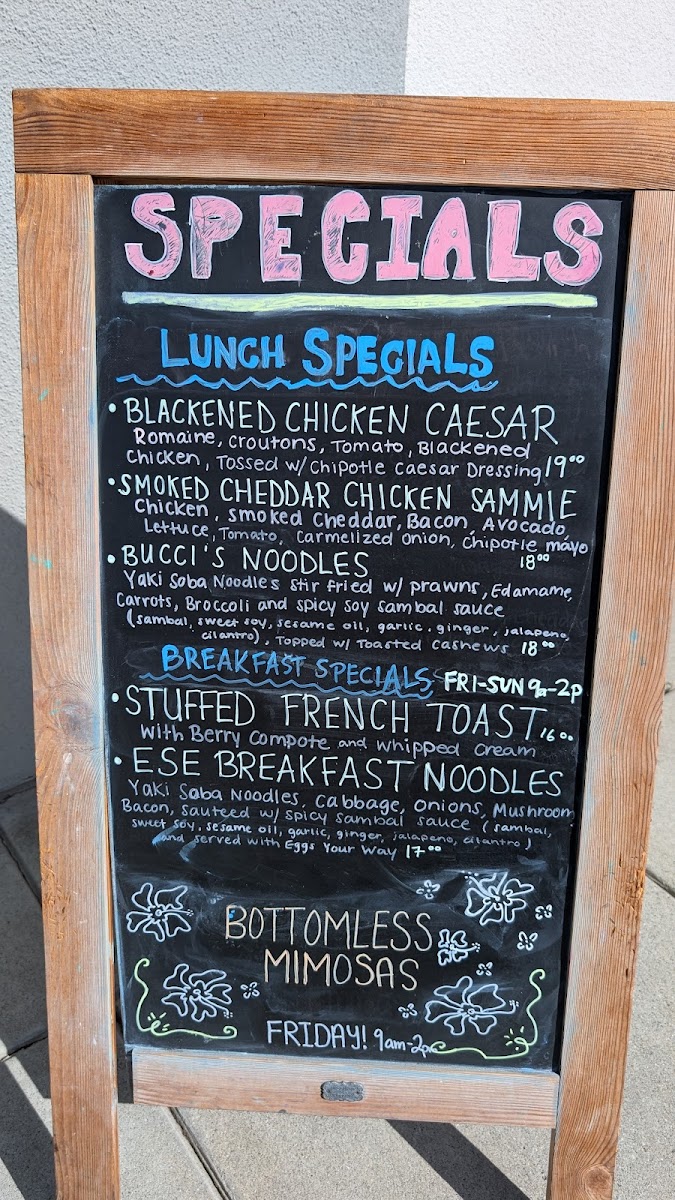 SPECIALS
LUNCH SPECIALS
• BLACKENED CHICKEN CAESAR
Romaine, croutons, Tomato, Blackened
chicken, Tossed w/ Chipotle Caesar Dressing 19⁰⁰
• SMOKED CHEDDAR CHICKEN SAMMIE
Chicken, smoked cheddar, Bacon, Avocado,
Lettuce, Tomato, Carmelized onion, chipotle mayo
18⁰⁰
• BUCCI'S NOODLES
Yaki Soba Noodles stir fried w/ prawns, Edamame,
Carrots, Broccoli and spicy soy sambal sauce
(sambal, sweet soy, sesame oil, garlic, ginger, jalapeno,
cilantro), Topped w/ Toasted cashews 18⁰⁰
BREAKFAST SPECIALS FRI-SUN 9a-2p
• STUFFED FRENCH TOAST 16⁰⁰
with Berry compote and whipped cream
• ESE BREAKFAST NOODLES
Yaki Soba Noodles, cabbage, onions, Mushroom
Bacon, sauteed w/ spicy sambal sauce (sambal,
sweet soy, sesame oil, garlic, ginger, jalapeno, cilantro)
and served with Eggs Your Way 17⁰⁰
BOTTOMLESS
MIMOSAS
FRIDAY! 9am-2pm